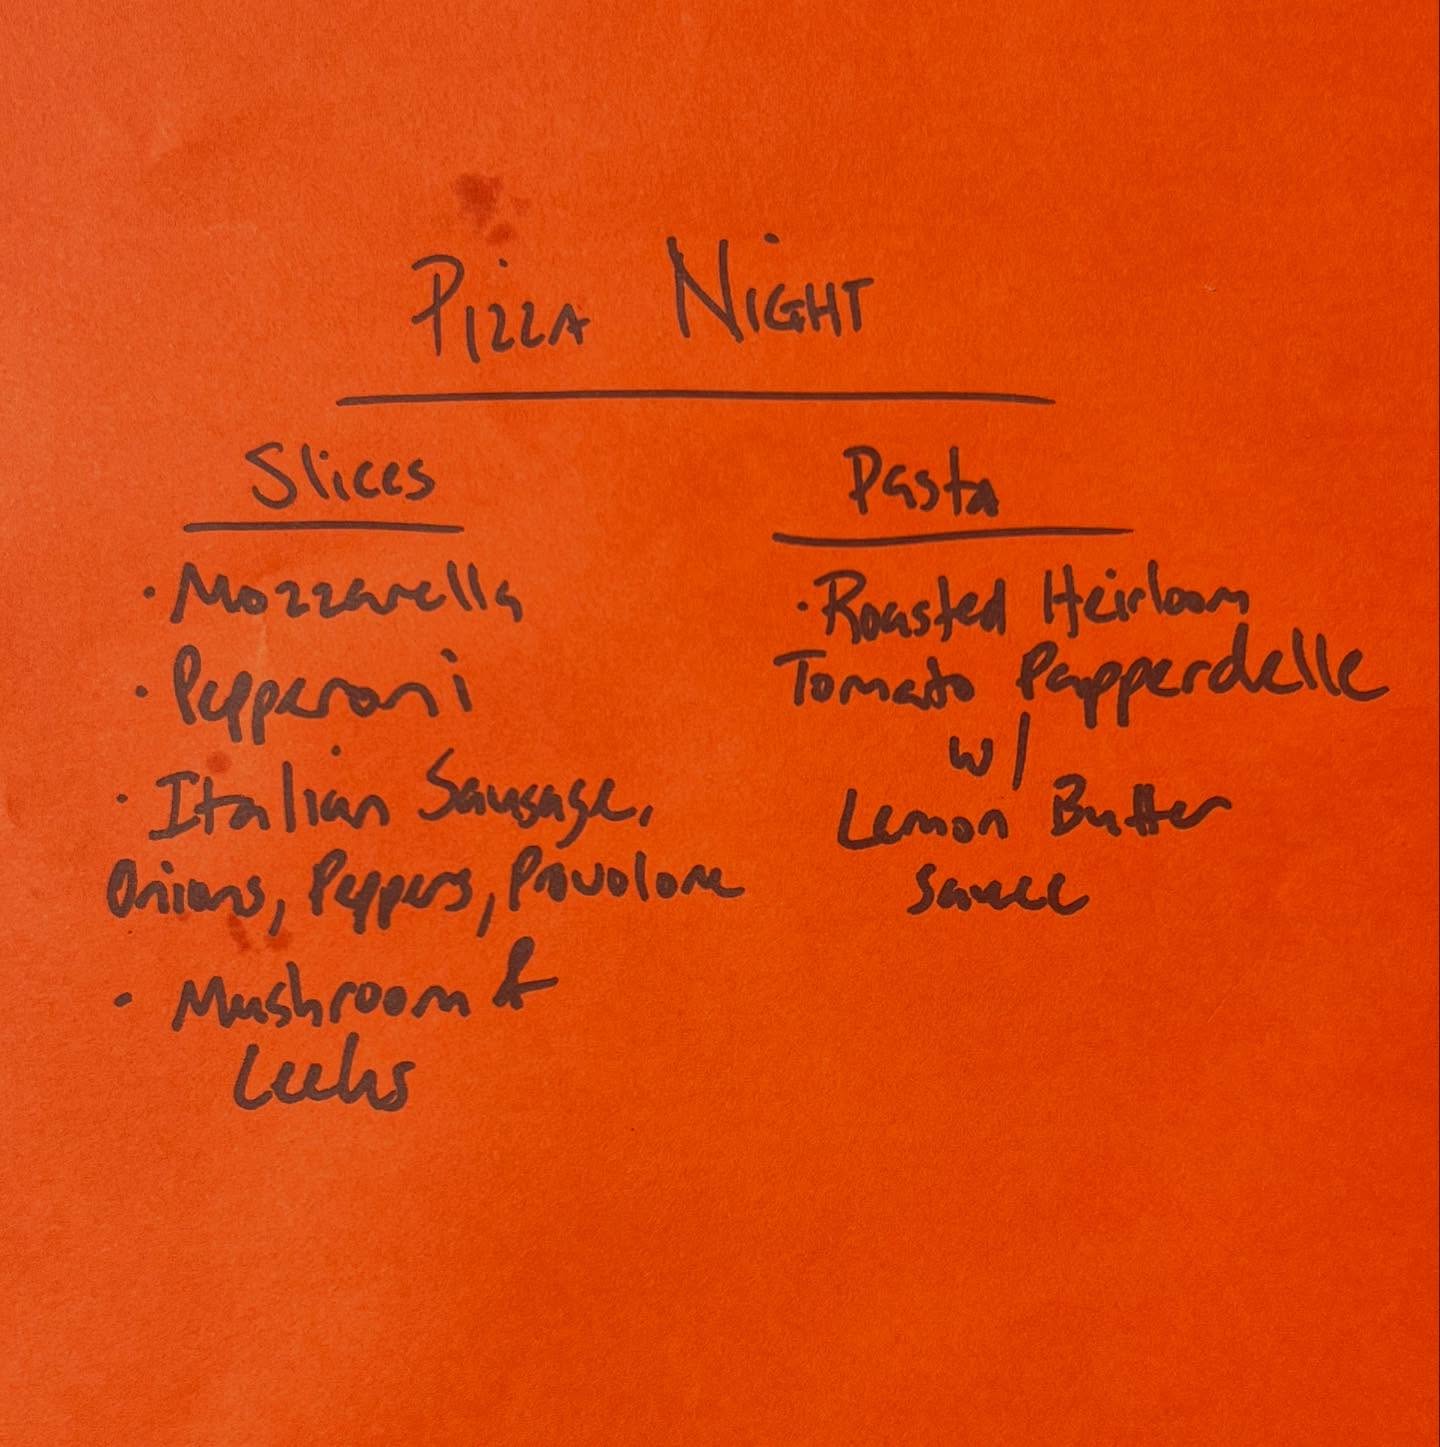 PIZZA NIGHT
Slices
· Mozzarella
· Pepperoni
· Italian Sausage,
Onions, Peppers, Provolone
· Mushroom &
Leeks
Pasta
· Roasted Heirloom
Tomato Papperdelle
w/
Lemon Butter
Sauce